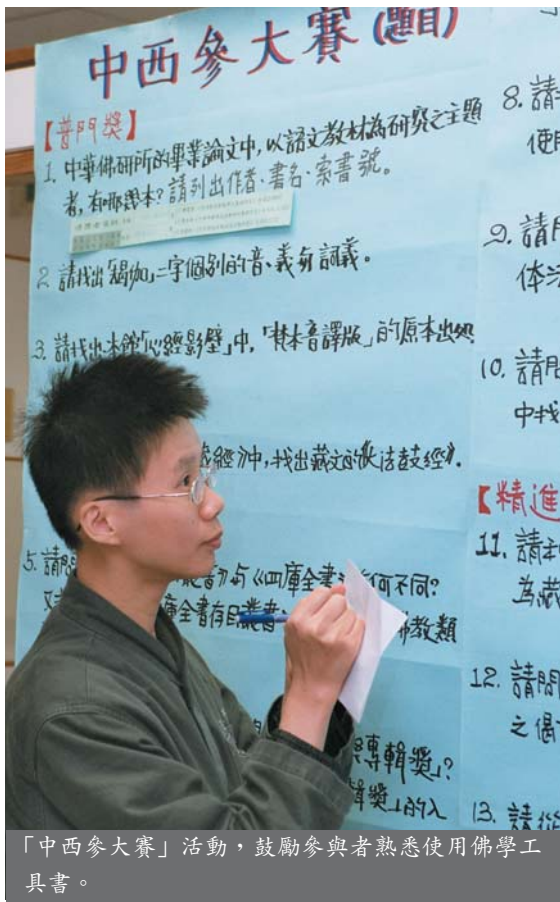 中西參大賽(題目)
【普門獎】
1. 中華佛研所的畢業論文中,以語文教材為研究之主題
者,有哪幾本?請列出作者、書名、索書號。
2. 請找出「羯加」二字個別的音、義與詞義。
3. 請找出本館「心經影壁」中,「梵本音譯版」的原本出處
經》中,找出藏文的《大法鼓經》.
5. 請問
與《四庫全書
何不同?
又
庫全書存目叢書
佛教類
專輯獎」?
輯獎」的入
8. 請
使用
9. 請
体
10. 請
中找
【精進
11. 請
為藏
12. 請問
之偈
13. 請從
「中西參大賽」活動,鼓勵參與者熟悉使用佛學工
具書。